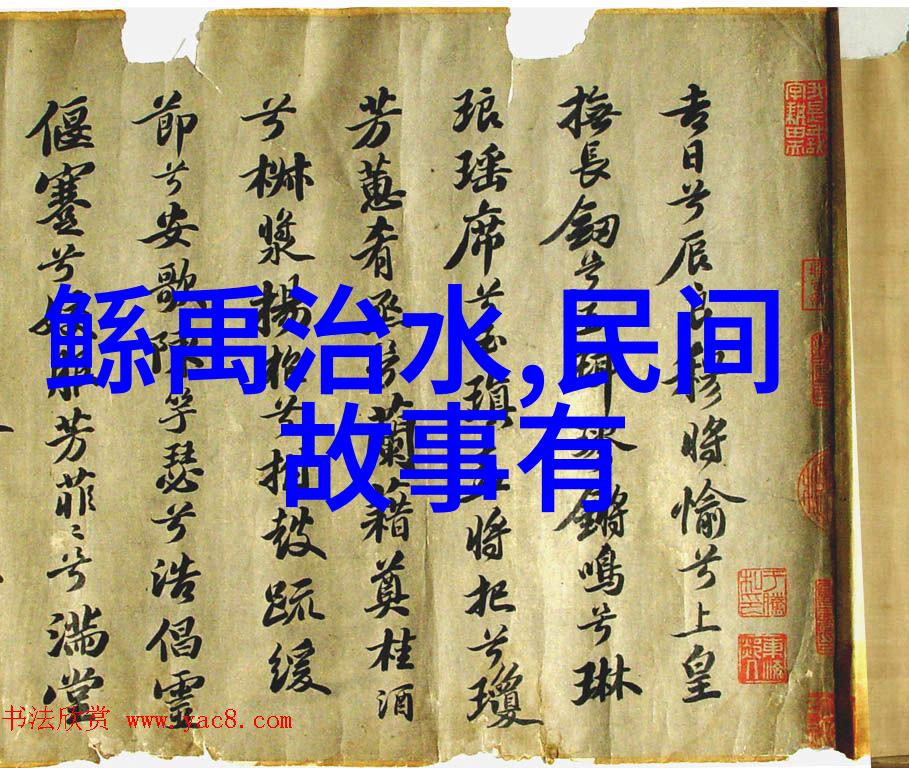 鯀禹治水,民间
故事有
吉日兮辰良穆將愉兮上皇
撫長劒兮玉珥璆鏘鳴兮琳
琅瑶席兮玉瑱將把兮瓊
芳蕙肴烝兮蘭藉奠桂酒
兮椒漿揚枹兮拊鼓疏緩
節兮安歌陳竽瑟兮浩倡靈
偃蹇兮芳菲〻兮滿堂
书法欣赏 www.yac8.com